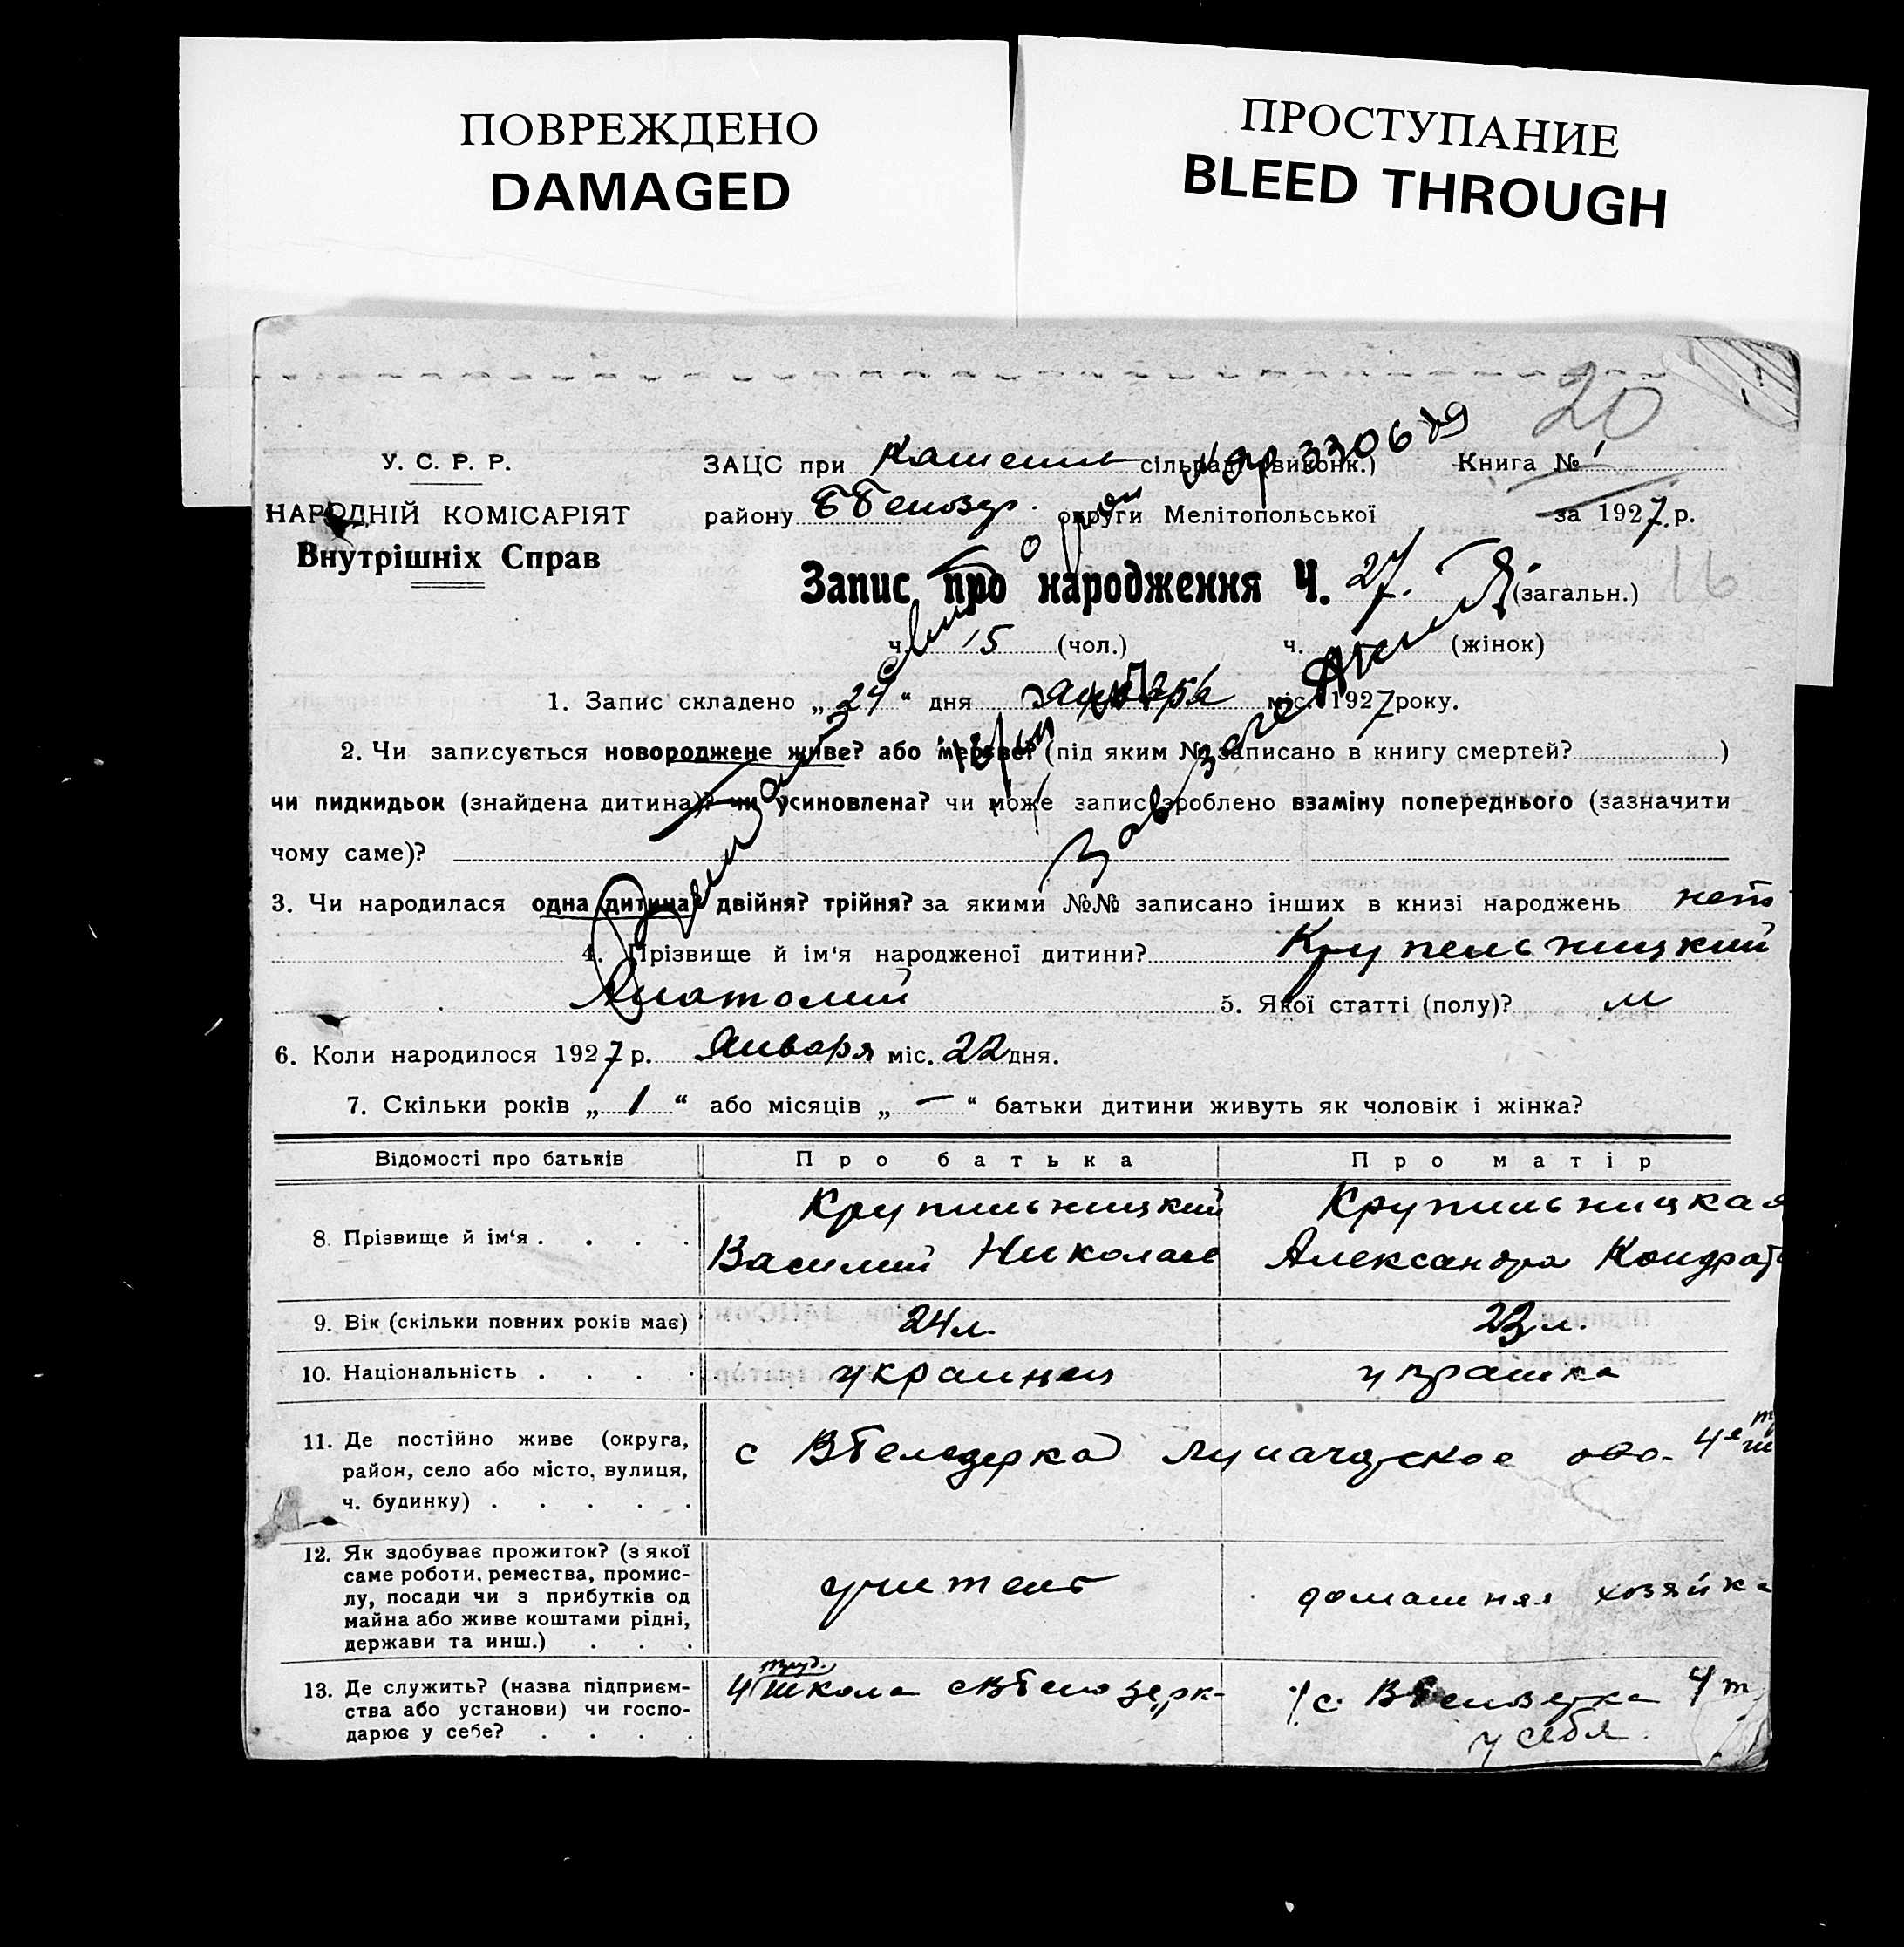 ПОВРЕЖДЕНО
DAMAGED
ПРОСТУПАНИЕ
BLEED THROUGH
20
У. С. Р. Р.
НАРОДНІЙ КОМІСАРІЯТ
Внутрішніх Справ
ЗАЦС при сільради (виконк.) Книга № 1
району округи Мелітопольської за 1927 р.
Запис про народження Ч. 27. (загальн.) 16
ч. 15 (чол.) ч. (жінок)
1. Запис складено „24“ дня января міс. 1927 року.
2. Чи записується новороджене живе? або мертве? (під яким № записано в книгу смертей? )
чи пидкидьок (знайдена дитина)? чи усиновлена? чи може запис зроблено взаміну попереднього (зазначити
чому саме)?
3. Чи народилася одна дитина? двійня? трійня? за якими №№ записано інших в книзі народжень нет
4. Прізвище й ім‘я народженої дитини? Крупельницкий
Анатолий 5. Якої статті (полу)? м
6. Коли народилося 1927 р. Января міс. 22 дня.
7. Скільки років „1“ або місяців „—“ батьки дитини живуть як чоловік і жінка?
Відомості про батьків Про батька Про матір
8. Прізвище й ім‘я . . . . Крупильницкий Василий Николаев Крупильницкая Александра Кондрат
9. Вік (скільки повних років має) 24 л. 23 л.
10. Національність . . . . украинец
11. Де постійно живе (округа,
район, село або місто, вулиця,
ч. будинку) . . . . .
12. Як здобуває прожиток? (з якої
саме роботи, ремества, промис-
лу, посади чи з прибутків од
майна або живе коштами рідні,
держави та инш.) . . .
учитель домашняя хозяйка
13. Де служить? (назва підприєм-
ства або установи) чи госпо-
дарює у себе? . . . .
4 труд. школа
у себя.